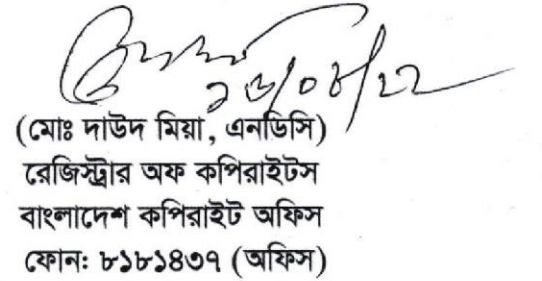 (মোঃ দাউদ মিয়া, এনডিসি)
রেজিস্ট্রার অফ কপিরাইটস
বাংলাদেশ কপিরাইট অফিস
ফোনঃ ৮১৮১৪৩৭ (অফিস)